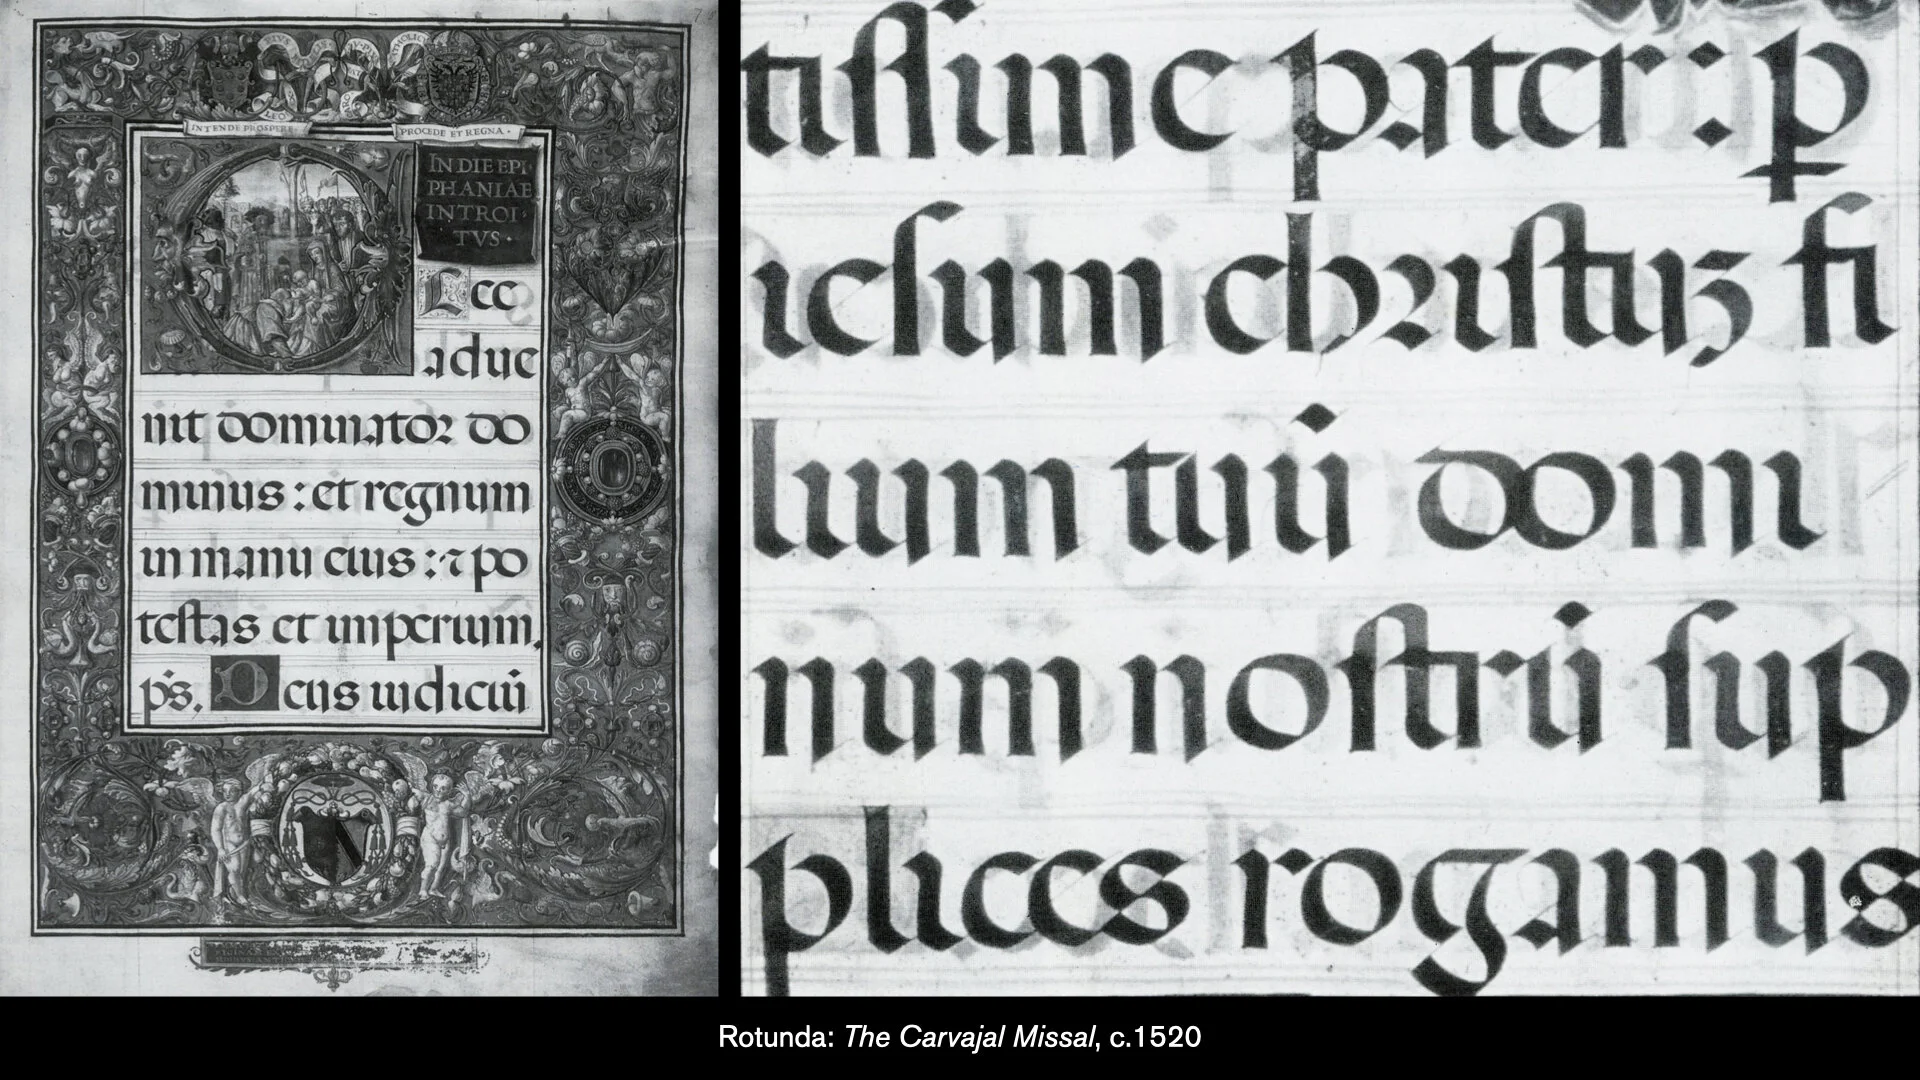 INTENDE PROSPERE
PROCEDE ET REGNA ·
IN DIE EPI
PHANIAE
INTROI ·
TVS ·
Ecce
adue
nit dominatoꝛ do
minus : et regnum
in manu eius : ⁊ po
testas et imperium.
p̄s. Deus iudiciū
tiſſime pater : ꝑ
ieſum chꝛiſtuꝫ fi
lium tuū domi
num noſtrū ſup
plices rogamus
Rotunda: The Carvajal Missal, c.1520